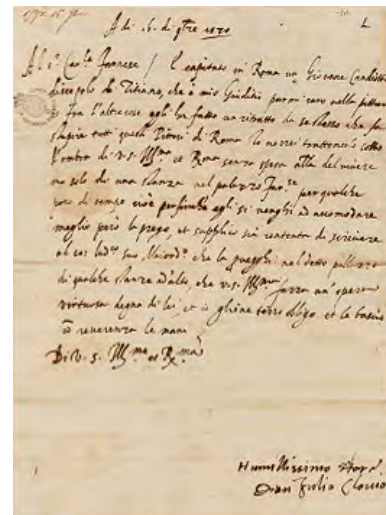 A di 16. di 9bre 1570
Al S.r Car.le Farnese / È capitato in Roma un Giovane Candiotto
discepolo di Titiano, che a mio giuditio parmi raro nella pittura
et fra l'altre cose egli ha fatto un ritratto da se stesso che fa
stupire tutti questi Pittori di Roma. Io vorrei trattenerlo sotto
l'ombra di V.S. Ill.ma et R.ma senza spesa alla del vivere
ma solo di una stanza nel palazzo Far.se per qualche
poco di tempo cioè per fin che egli si venghi ad accomodare
meglio però la prego, et supplico sia contenta di scrivere
al co: Lud.co suo Maiord.o che lo provegghi nel detto palazzo
di qualche stanza ad alto, che V.S. Ill.ma farra un'opera
virtuosa degna di lei, et io gliene terrò obligo et le bascio
con reverenza le mani
Di V.S. Ill.ma et R.ma
Humillissimo
Don Julio Clovio